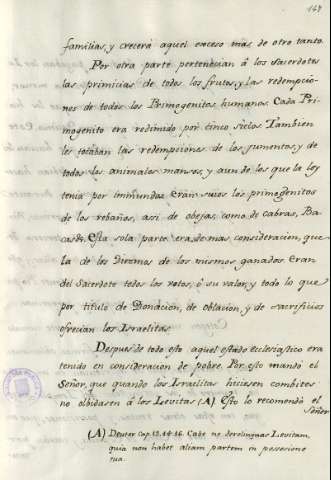 147
familias, y crecerá aquel exceso mas de otro tanto.
Por otra parte pertenecian á los Sacerdotes
las primicias de todos los frutos, y las redempcio-
nes de todos los Primogenitos humanos. Cada Pri-
mogenito era redimido por cinco siclos. Tambien
les tocaban las redempciones de los jumentos, y de
todos los animales mansos, y aun de los que la ley
tenia por inmundos. Eran suios los primogenitos
de los rebaños, asi de obejas, como de cabras, Ba-
cas &c. Esta sola parte era de mas consideracion, que
la de los Diezmos de los mismos ganados. Eran
del Sacerdote todos los votos, ó su valor, y todo lo que
por titulo de Donacion, de oblacion, y de sacrificios
ofrecian los Israelitas.
Despues de todo esto aquel estado ecclesiastico era
tenido en consideracion de pobre. Por esto mandó el
Señor, que quando los Israelitas hiciesen combites
no olbidasen á los Levitas (A). Esto lo recomendó el
Señor
(A) Deuter Cap. 12. 14. 16. Cabe ne derelinquas Levitam,
quia non habet aliam partem in possesione
tua.